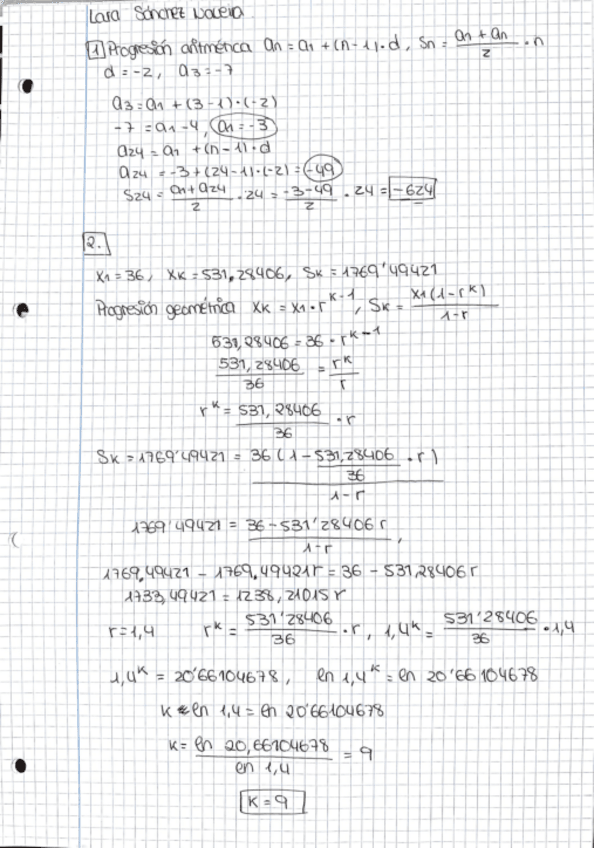 Lara Sánchez
1) Progresión aritmética an = a1 + (n-1)·d, Sn = (a1 + an)/2 · n
d = -2, a3 = -7
a3 = a1 + (3-1)·(-2)
-7 = a1 - 4, a1 = -3
a24 = a1 + (n-1)·d
a24 = -3 + (24-1)·(-2) = -49
S24 = (a1 + a24)/2 · 24 = (-3-49)/2 · 24 = -624
2.
x1 = 36, xk = 531,28406, Sk = 1769'49421
Progresión geométrica xk = x1 · r^(k-1), Sk = x1(1-r^k)/(1-r)
531,28406 = 36 · r^(k-1)
531,28406/36 = r^k/r
r^k = 531,28406/36 · r
Sk = 1769'49421 = 36(1 - 531,28406/36 · r)/(1-r)
1769'49421 = (36 - 531'28406 r)/(1-r),
1769,49421 - 1769,49421r = 36 - 531,28406 r
1733,49421 = 1238,21015 r
r = 1,4 r^k = 531'28406/36 · r, 1,4^k = 531'28406/36 · 1,4
1,4^k = 20'66104678, ln 1,4^k = ln 20'66104678
k ln 1,4 = ln 20'66104678
k = ln 20,66104678/ln 1,4 = 9
k = 9